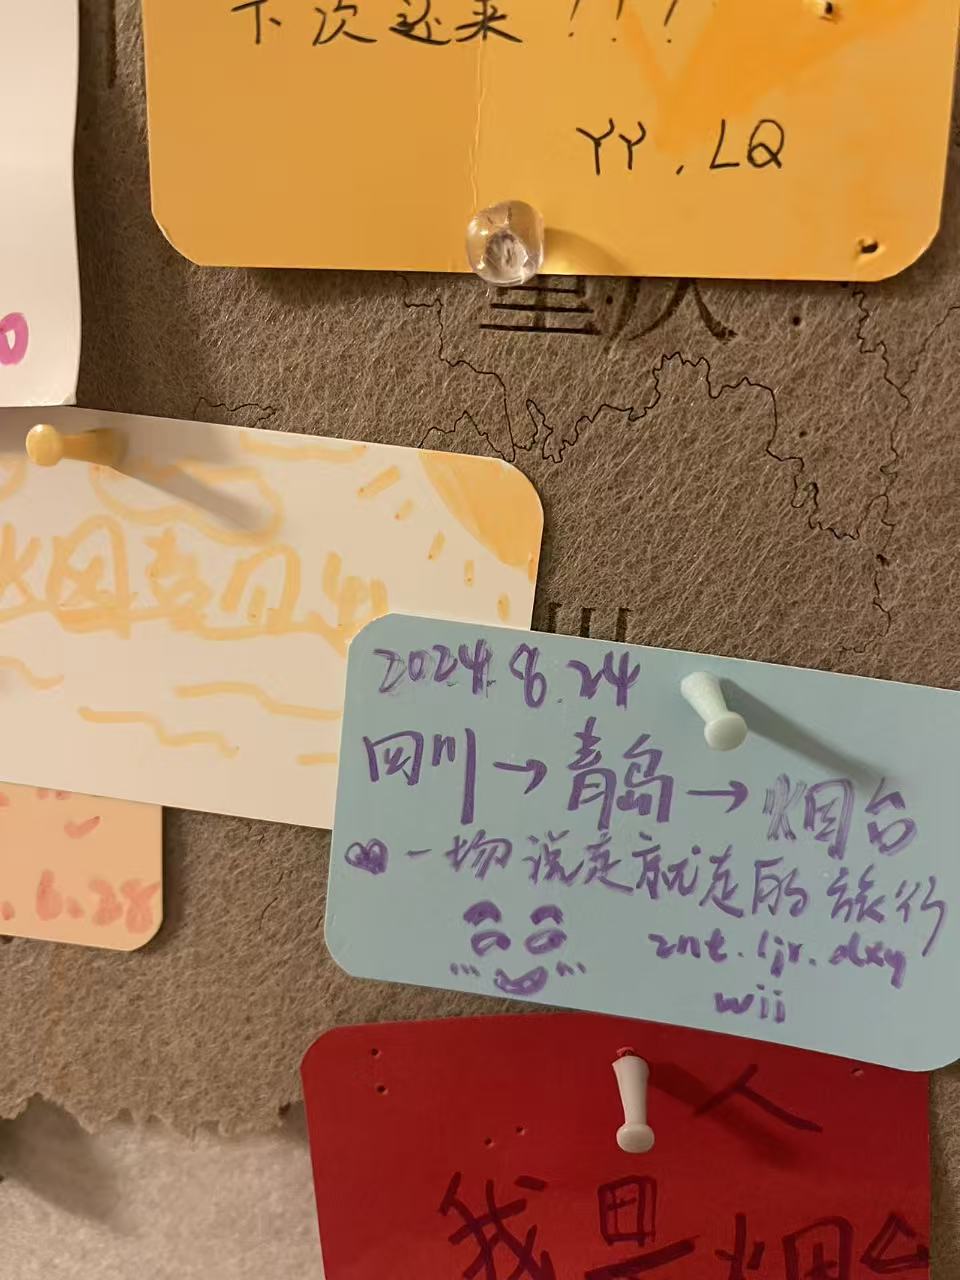 下次还来！！！
YY . LQ
重庆
2024.8.24
四川→青岛→烟台
一场说走就走的旅行
znt.ljr.dxy
wii
6.28
人
我是烟台